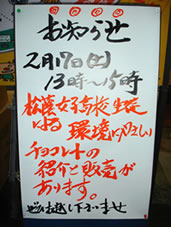 お知らせ
2月17日(土)
13時〜15時
松蔭女子高校生徒
による環境にやさしい
チョコレートの
紹介と販売が
あります。
ぜひお越し下さいませ